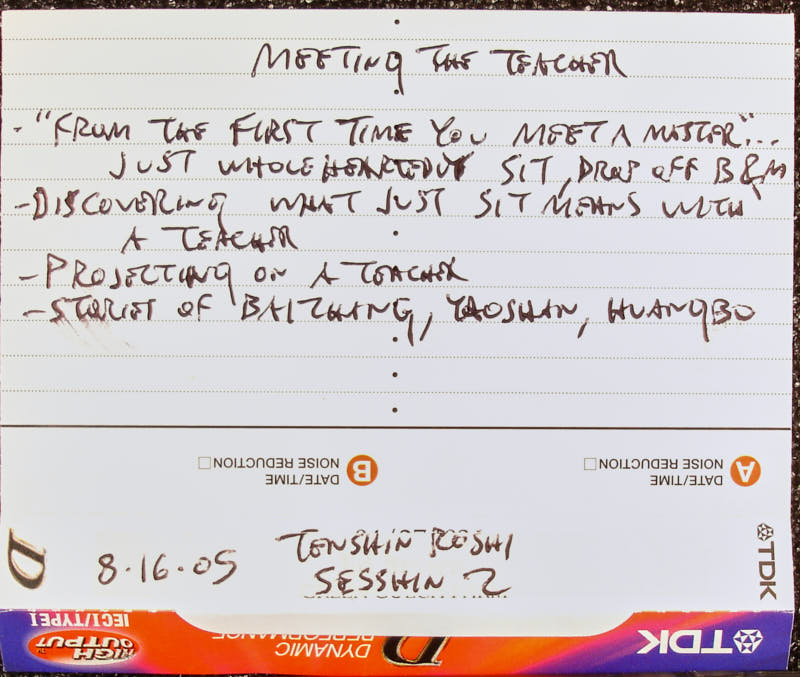 MEETING THE TEACHER
- "FROM THE FIRST TIME YOU MEET A MASTER"...
JUST WHOLEHEARTEDLY SIT, DROP OFF B&M
- DISCOVERING WHAT JUST SIT MEANS WITH
A TEACHER
- PROJECTING ON A TEACHER
- STORIES OF BAIZHANG, YAOSHAN, HUANGBO
B DATE/TIME
NOISE REDUCTION
A DATE/TIME
NOISE REDUCTION
8.16.05 TENSHIN ROSHI
SESSHIN 2
D
TDK
IECI/TYPE I
HIGH OUTPUT TM
DYNAMIC PERFORMANCE
D
TDK